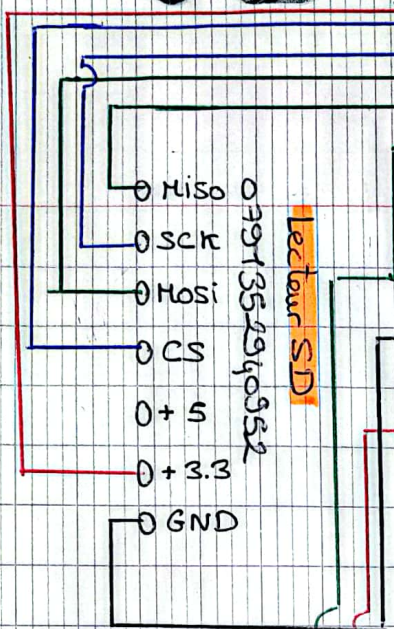 Miso
SCK
Mosi
CS
+ 5
+ 3.3
GND
0791352940952
Lecteur SD